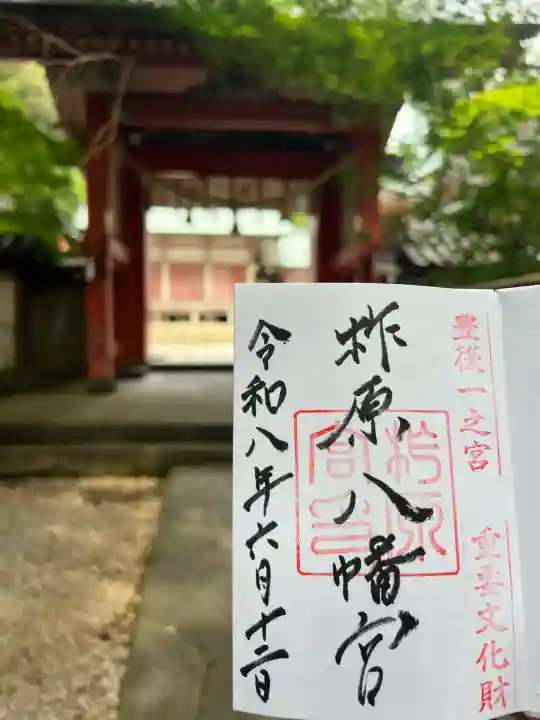 豊後一之宮
重要文化財
柞原八幡宮
令和八年六月十二日